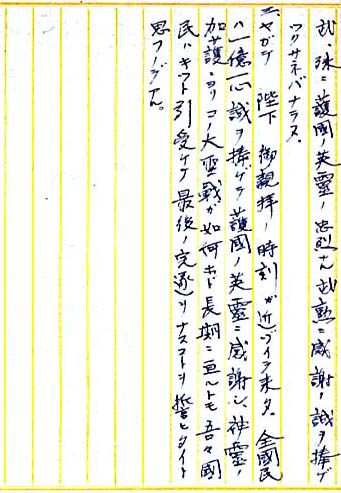 武、殊ニ護國ノ英靈ノ忠烈ナル武勲ニ感謝ノ誠ヲ捧ゲ
ツクサネバナラヌ。
三、ヤガテ 陛下 御親拝ノ時刻ガ近ヅイテ来タ。全國民
ハ一億一心誠ヲ捧ゲテ護國ノ英靈ニ感謝シ、神靈ノ
加護ニヨリコノ大聖戰ガ如何ホド長期ニ亘ルトモ吾々國
民ハキット引受ケテ最後ノ完遂ヲナスコトヲ誓ヒタイト
思フノデアル。